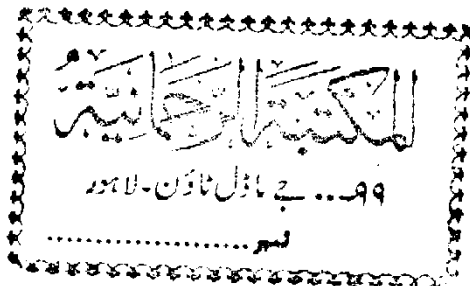 المكتبة الرحمانية
۹۹... جے ماڈل ٹاؤن۔ لاہور
نمبر ......................